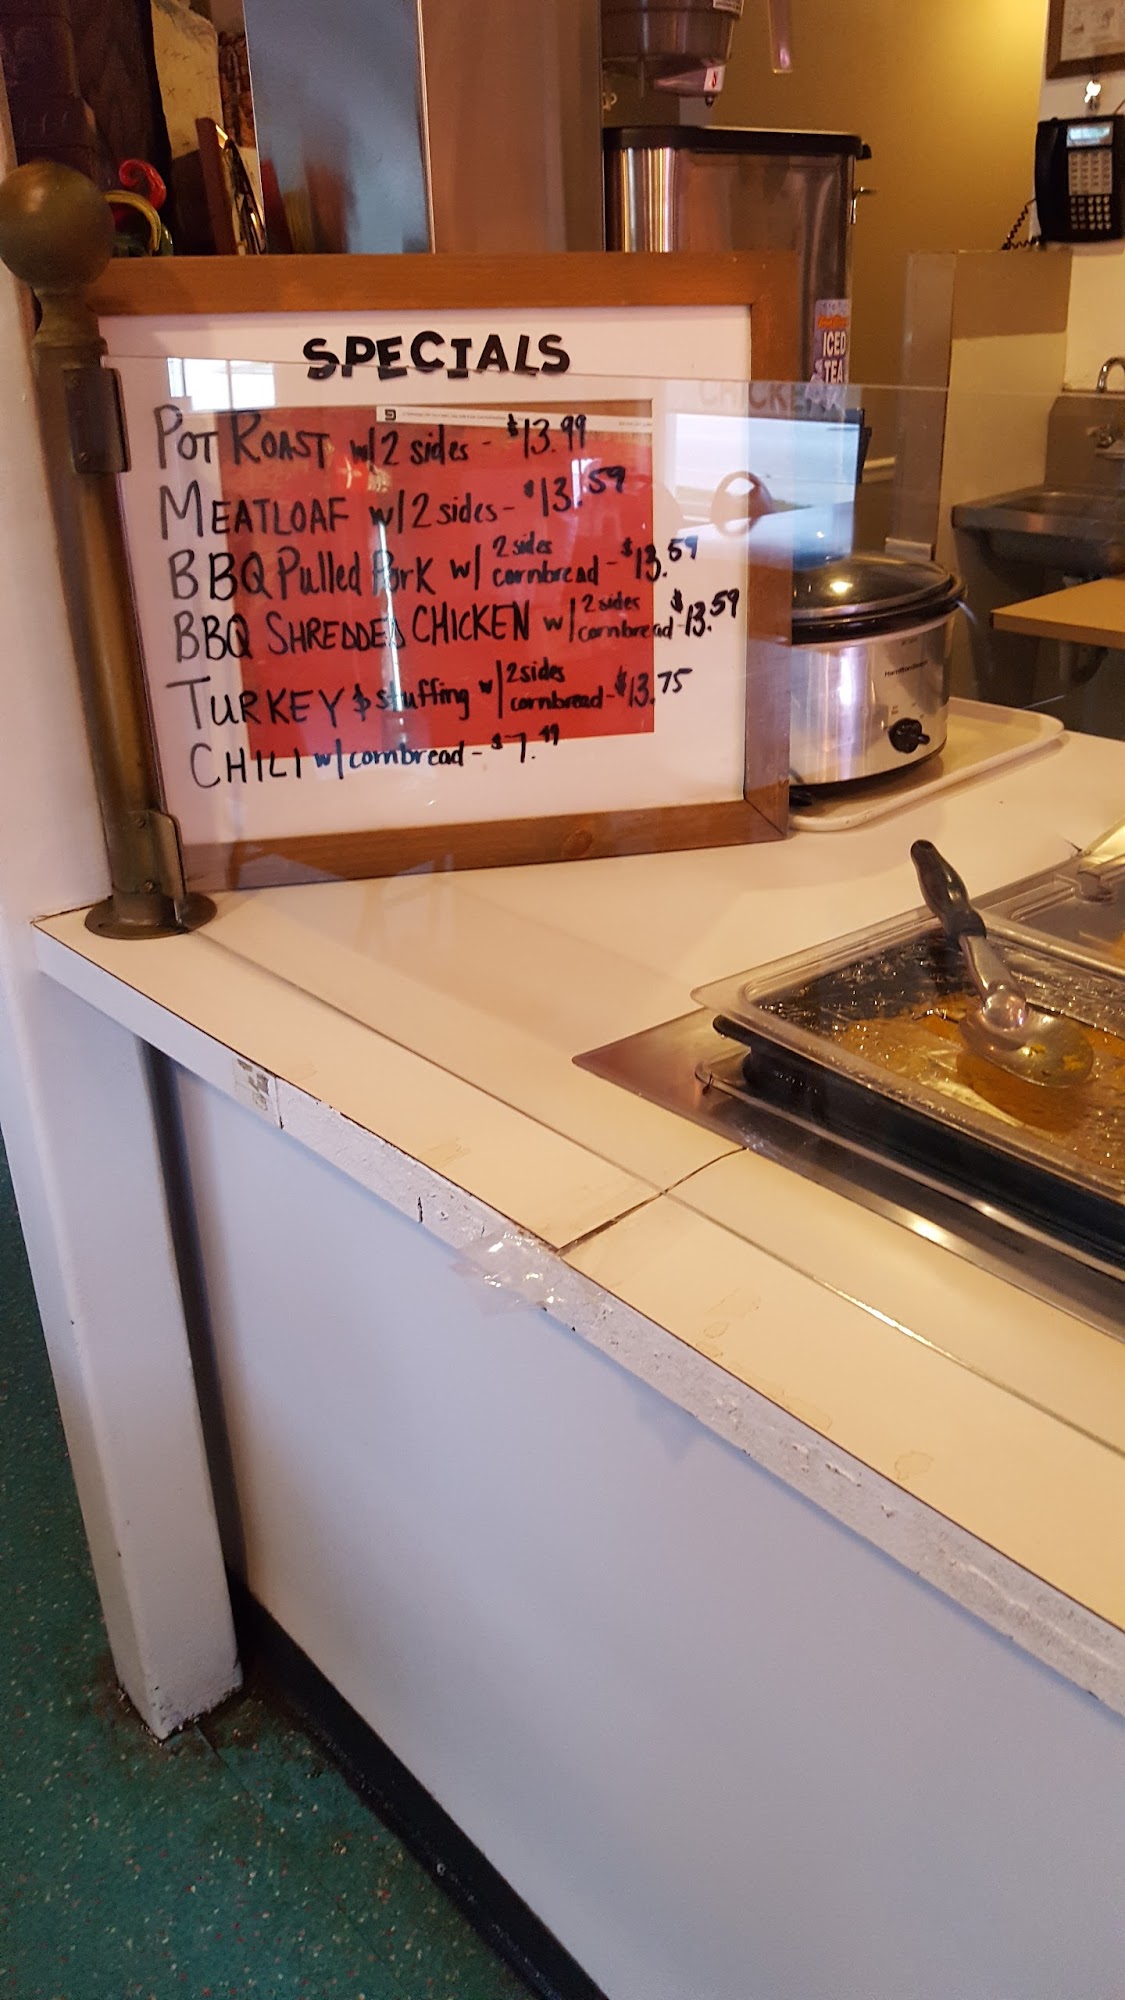 SPECIALS
POT ROAST w/ 2 sides - $13.99
MEATLOAF w/ 2 sides - $13.59
BBQ Pulled Pork w/ 2 sides cornbread - $13.59
BBQ SHREDDED CHICKEN w/ 2 sides cornbread $13.59
TURKEY & stuffing w/ 2 sides cornbread - $13.75
CHILI w/ cornbread - $7.49
CHICKEN
ICED
TEA
Hamilton Beach